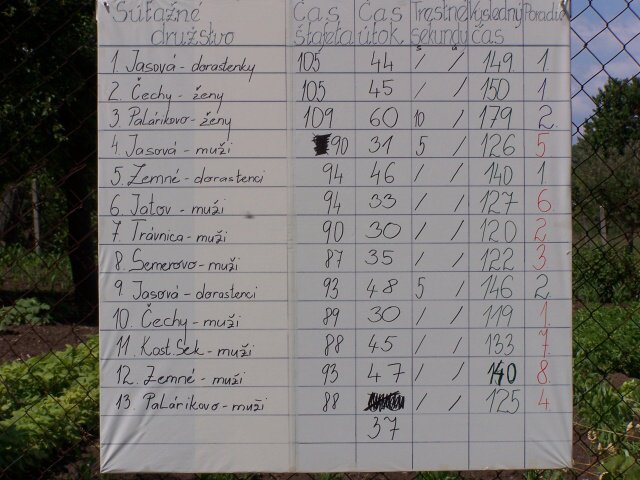 Súťažné Čas Čas Trestné Výsledný Poradie
družstvo štafeta útok sekundy čas
š ú
1. Jasová - dorastenky 105 44 / / 149 1
2. Čechy - ženy 105 45 / / 150 1
3. Palárikovo - ženy 109 60 10 / 179 2
4. Jasová - muži 90 31 5 / 126 5
5. Zemné - dorastenci 94 46 / / 140 1
6. Jatov - muži 94 33 / / 127 6
7. Trávnica - muži 90 30 / / 120 2
8. Semerovo - muži 87 35 / / 122 3
9. Jasová - dorastenci 93 48 5 / 146 2
10. Čechy - muži 89 30 / / 119 1
11. Kost. Sek - muži 88 45 / / 133 7
12. Zemné - muži 93 47 / / 140 8
13. Palárikovo - muži 88 / / 125 4
37